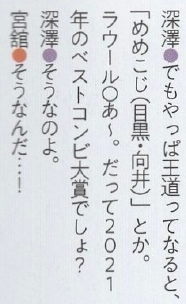 深澤●でもやっぱ王道ってなると、
「めめこじ(目黒・向井)」とか。
ラウール○あ〜。だって2021
年のベストコンビ大賞でしょ？
深澤●そうなのよ。
宮舘●そうなんだ…！